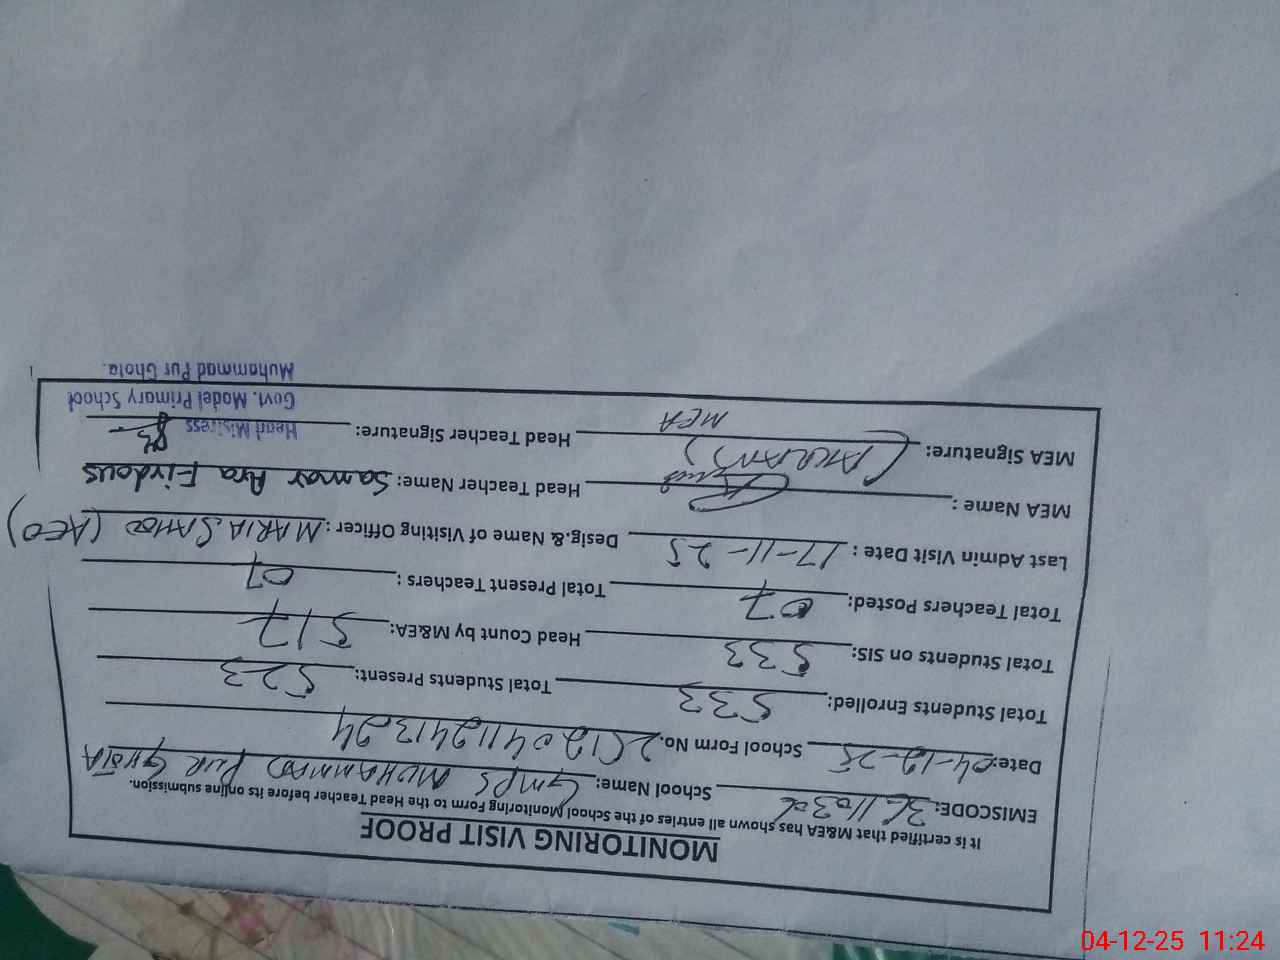 MONITORING VISIT PROOF
It is certified that M&EA has shown all entries of the School Monitoring Form to the Head Teacher before its online submission.
EMISCODE: School Name: GMPS MUHAMMAD PUR GHOTA
Date: 04-12-25 School Form No.
Total Students Enrolled: 533 Total Students Present: 523
Total Students on SIS: 533 Head Count by M&EA: 517
Total Teachers Posted: 07 Total Present Teachers: 07
Last Admin Visit Date: 17-11-25 Desig.& Name of Visiting Officer: MARIA (AEO)
MEA Name: Head Teacher Name: Samar Ara Firdous
MEA Signature: MEA Head Teacher Signature:
Head Mistress
Govt. Model Primary School
Muhammad Pur Ghota.
04-12-25 11:24